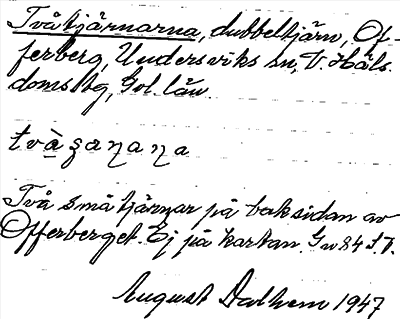 Tvåtjärnarna, dubbeltjärn, Of-
ferberg, Undersviks sn, V. Häls.
doms tg, Gvl. län
tvàʂaɳaɳa
Två små tjärnar på baksidan av
Offerberget. Ej på kartan. Gu 84 S.T.
August Dalhem 1947